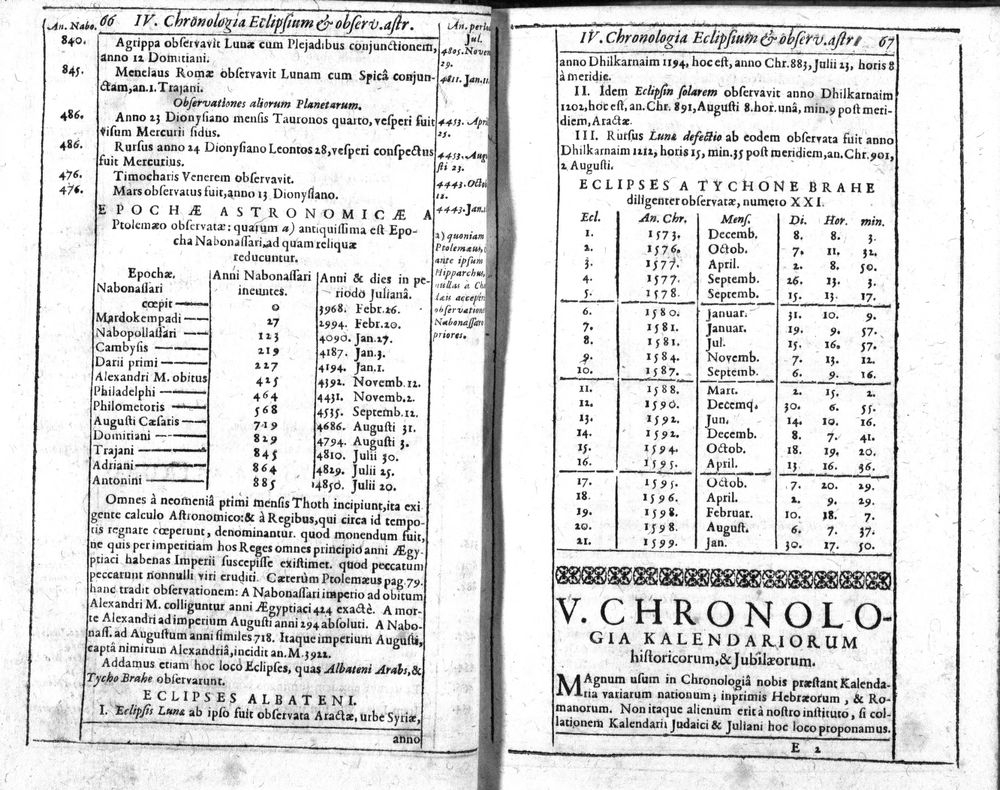 An. Nabo. 66 IV. Chronologia Eclipsium & observ. astr.
840. Agrippa observavit Lunæ cum Plejadibus conjunctionem,
anno 12 Domitiani.
845. Menelaus Romæ observavit Lunam cum Spicâ conjun-
ctam, an. 1. Trajani.
Observationes aliorum Planetarum.
486. Anno 23 Dionysiano mensis Tauronos quarto, vesperi fuit
visum Mercurii sidus.
486. Rursus anno 24 Dionysiano Leontos 28, vesperi conspectus
fuit Mercurius.
476. Timocharis Venerem observavit.
476. Mars observatus fuit, anno 13 Dionysiano.
EPOCHÆ ASTRONOMICÆ A
Ptolemæo observatæ: quarum a) antiquissima est Epo-
cha Nabonassari, ad quam reliquæ
reducuntur.
Epochæ, Anni Nabonassari Anni & dies in pe-
Nabonassari ineuntes. riodo Julianâ.
cœpit 0 3968. Febr. 26.
Mardokempadi 27 2994. Febr. 20.
Nabopollassari 123 4090. Jan. 27.
Cambysis 219 4187. Jan. 3.
Darii primi 227 4194. Jan. 1.
Alexandri M. obitus 425 4392. Novemb. 12.
Philadelphi 464 4431. Novemb. 2.
Philometoris 568 4535. Septemb. 12.
Augusti Cæsaris 719 4686. Augusti 31.
Domitiani 829 4794. Augusti 3.
Trajani 845 4810. Julii 30.
Adriani 864 4829. Julii 25.
Antonini 885 4850. Julii 20.
Omnes à neomeniâ primi mensis Thoth incipiunt, ita exi
gente calculo Astronomico: & à Regibus, qui circa id tempo-
ris regnare cœperunt, denominantur. quod monendum fuit,
ne quis per imperitiam hos Reges omnes principio anni Ægy-
ptiaci habenas Imperii suscepisse existimet. quod peccatum
peccarunt nonnulli viri eruditi. Cæterùm Ptolemæus pag 79.
hanc tradit observationem: A Nabonassari imperio ad obitum
Alexandri M. colliguntur anni Ægyptiaci 424 exactè. A mor-
te Alexandri ad imperium Augusti anni 294 absoluti. A Nabo-
nass. ad Augustum anni similes 718. Itaque imperium Augusti,
captâ nimirum Alexandriâ, incidit an. M. 3922.
Addamus etiam hoc locò Eclipses, quas Albateni Arabs, &
Tycho Brahe observarunt.
ECLIPSES ALBATENI.
I. Eclipsis Lunæ ab ipso fuit observata Aractæ, urbe Syriæ,
anno
An. per
Jul.
4805. Novem
29.
4811. Jan. 11
4453. Apri
25.
4453. Aug
sti 23.
4443. Octo
12.
4443. Jan.
a) quoniam
Ptolemæus,
ante ipsum
Hipparchus,
nullas à Ch
dæis accepi
observation
Nabonassaro
priores.
IV. Chronologia Eclipsium & observ. astr. 67
anno Dhilkarnaim 1194, hoc est, anno Chr. 883, Julii 23, horis 8
à meridie.
II. Idem Eclipsin solarem observavit anno Dhilkarnaim
1202, hoc est, an. Chr. 891, Augusti 8. hor. unâ, min. 9 post meri-
diem, Aractæ.
III. Rursus Lunæ defectio ab eodem observata fuit anno
Dhilkarnaim 1212, horis 15, min. 35 post meridiem, an. Chr. 901,
2 Augusti.
ECLIPSES A TYCHONE BRAHE
diligenter observatæ, numero XXI.
Ecl. An. Chr. Mens. Di. Hor. min.
1. 1573. Decemb. 8. 8. 3.
2. 1576. Octob. 7. 11. 32.
3. 1577. April. 2. 8. 50.
4. 1577. Septemb. 26. 13. 3.
5. 1578. Septemb. 15. 13. 17.
6. 1580. Januar. 31. 10. 9.
7. 1581. Januar. 19. 9. 57.
8. 1581. Jul. 15. 16. 57.
9. 1584. Novemb. 7. 13. 12.
10. 1587. Septemb. 6. 9. 16.
11. 1588. Mart. 2. 15. 2.
12. 1590. Decemq. 30. 6. 55.
13. 1592. Jun. 14. 10. 16.
14. 1592. Decemb. 8. 7. 41.
15. 1594. Octob. 18. 19. 20.
16. 1595. April. 13 16. 36.
17. 1595. Octob. 7. 20. 29.
18. 1596. April. 2. 9. 29.
19. 1598. Februar. 10. 18. 7.
20. 1598. August. 6. 7. 37.
21. 1599. Jan. 30. 17. 50.
V. CHRONOLO-
GIA KALENDARIORUM
historicorum, & Jubilæorum.
Magnum usum in Chronologiâ nobis præstant Kalenda-
ria variarum nationum; inprimis Hebræorum, & Ro-
manorum. Non itaque alienum erit à nostro instituto, si col-
lationem Kalendarii Judaici & Juliani hoc loco proponamus.
E 2